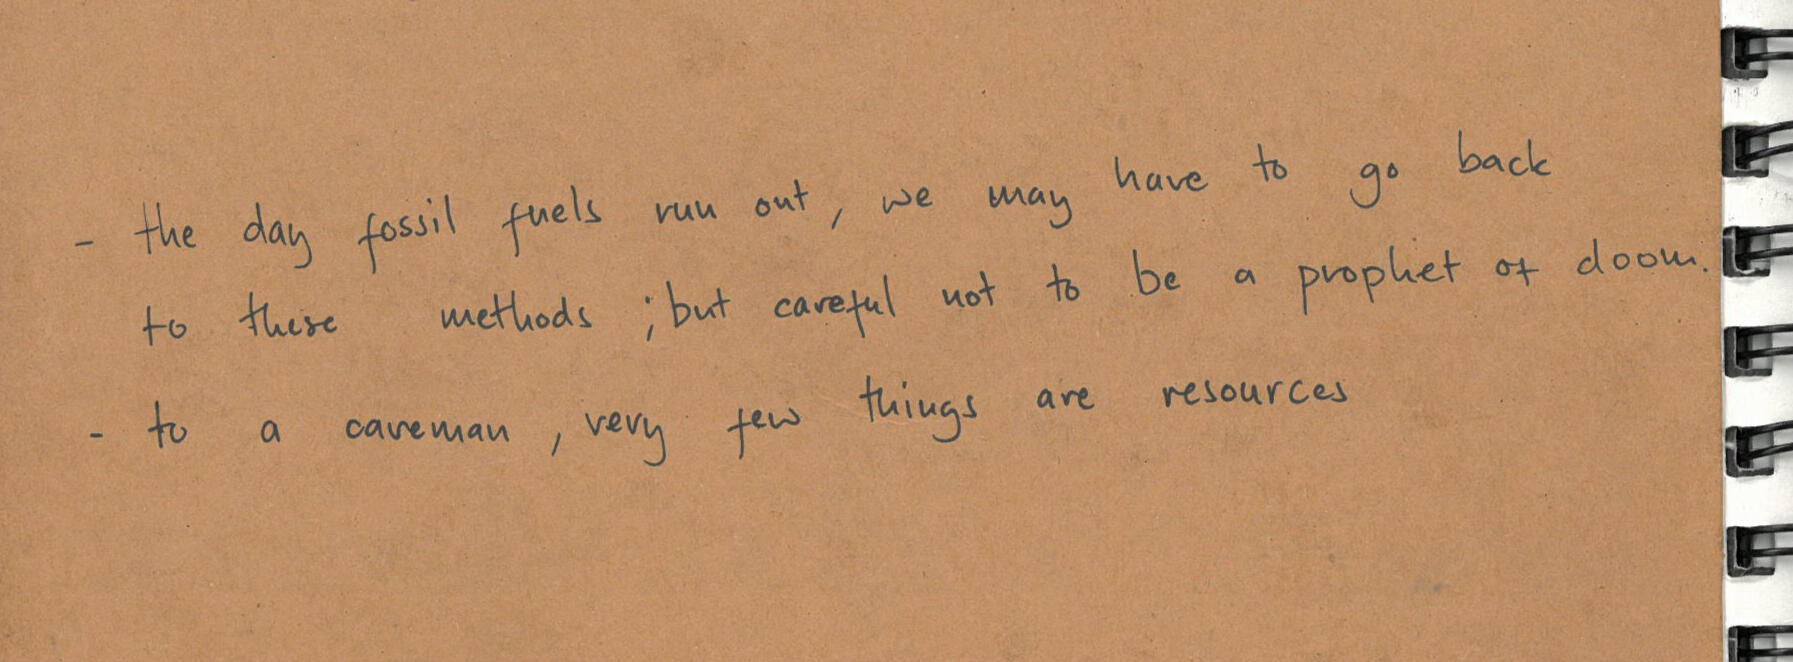 - the day fossil fuels run out, we may have to go back
to these methods ; but careful not to be a prophet of doom.
- to a caveman, very few things are resources